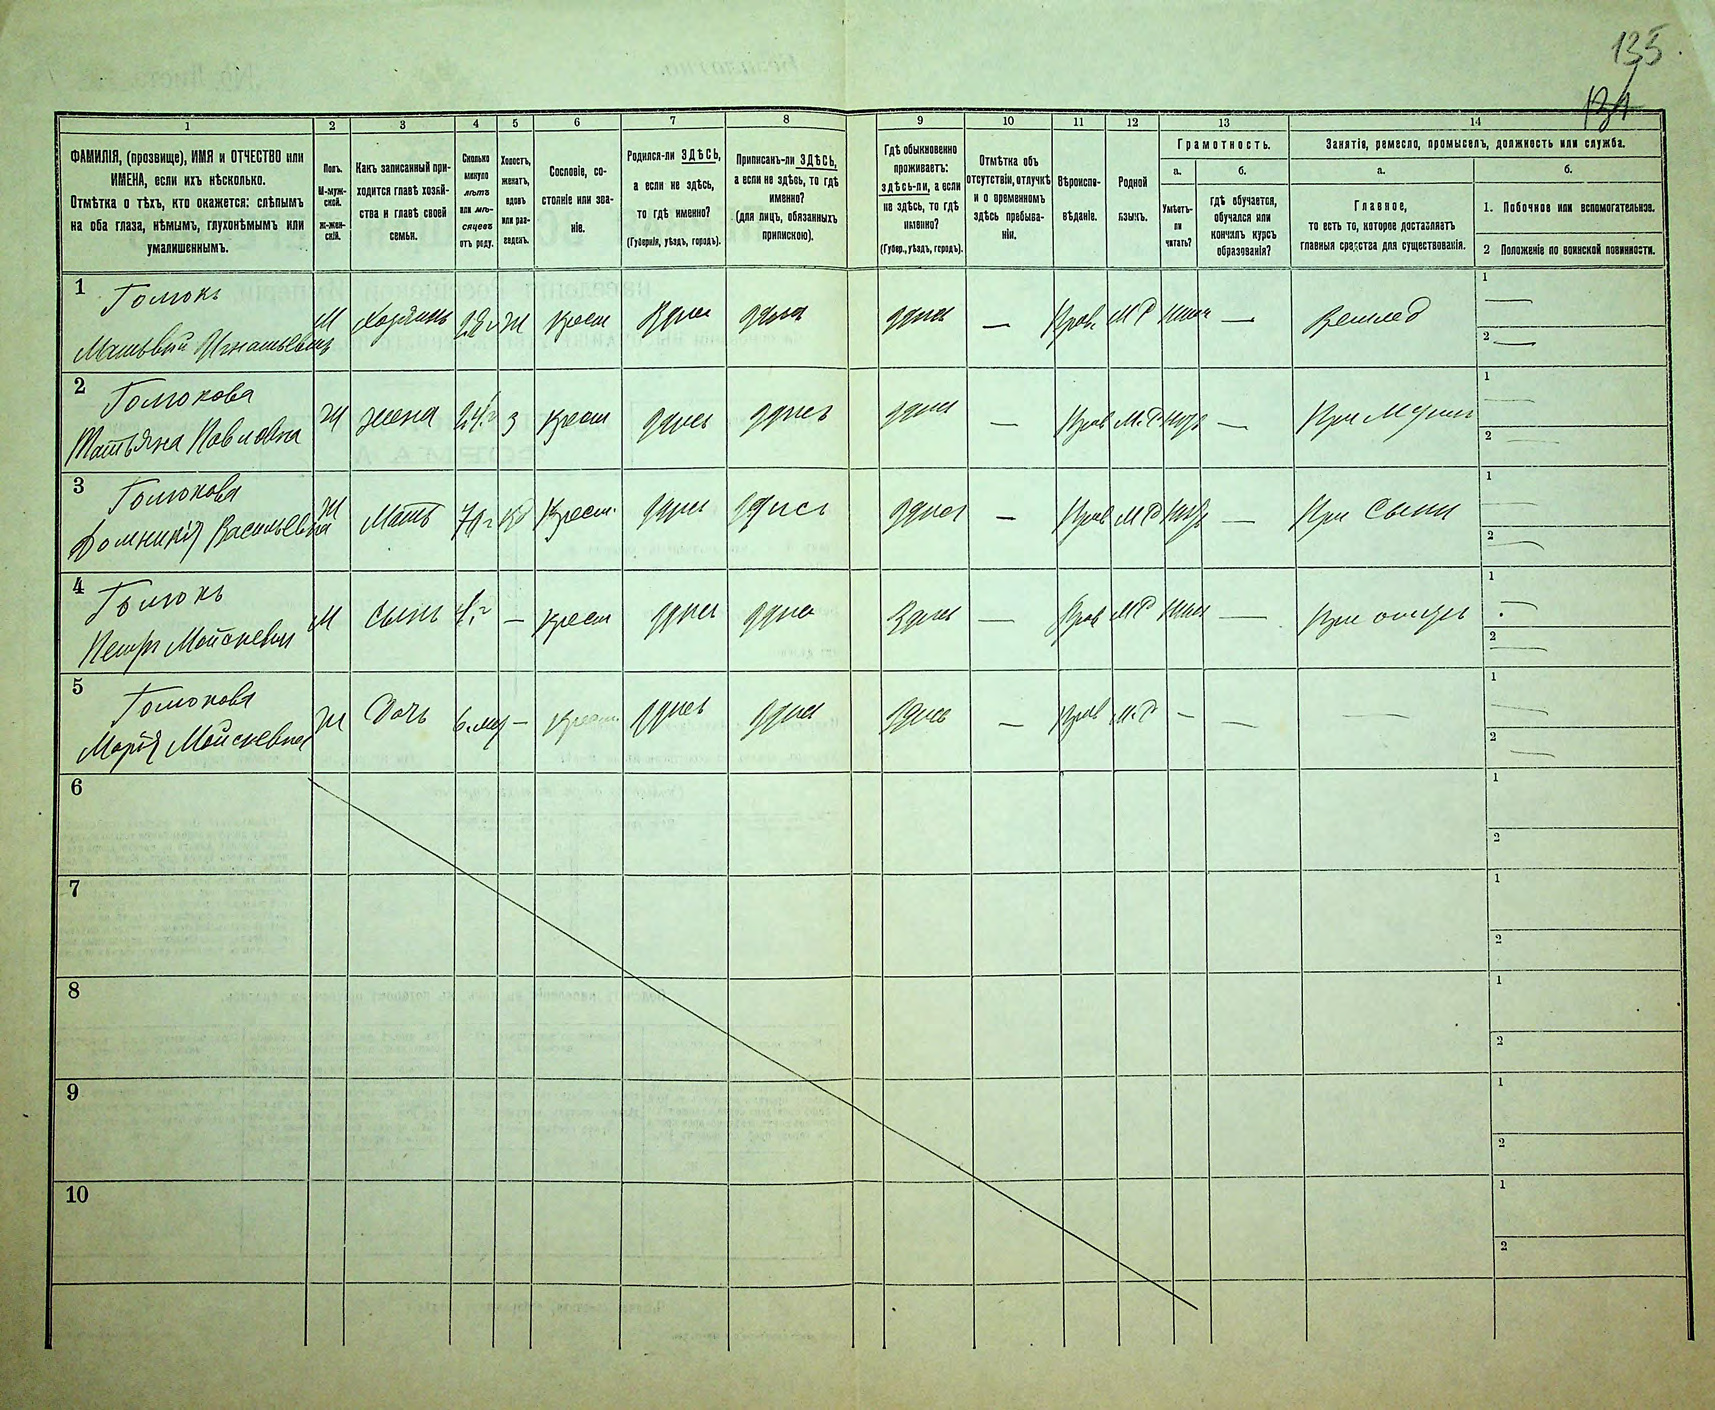 135
134
1 2 3 4 5 6 7 8 9 10 11 12 13 14
ФАМИЛІЯ, (прозвище), ИМЯ и ОТЧЕСТВО или
ИМЕНА, если ихъ нѣсколько.
Отмѣтка о тѣхъ, кто окажется: слѣпымъ
на оба глаза, нѣмымъ, глухонѣмымъ или
умалишеннымъ.
Полъ.
М-муж-
ской.
Ж-жен-
скій.
Какъ записанный при-
ходится главѣ хозяй-
ства и главѣ своей
семьи.
Сколько
минуло
лѣтъ
или мѣ-
сяцевъ
отъ роду.
Холостъ,
женатъ,
вдовъ
или раз-
веденъ.
Сословіе, со-
стояніе или зва-
ніе.
Родился-ли ЗДѢСЬ,
а если не здѣсь,
то гдѣ именно?
(Губернія, уѣздъ, городъ).
Приписанъ-ли ЗДѢСЬ,
а если не здѣсь, то гдѣ
именно?
(для лицъ, обязанныхъ
припискою).
Гдѣ обыкновенно
проживаетъ:
здѣсь-ли, а если
не здѣсь, то гдѣ
именно?
(Губер., уѣздъ, городъ).
Отмѣтка объ
отсутствіи, отлучкѣ
и о временномъ
здѣсь пребыва-
ніи.
Вѣроиспо-
вѣданіе.
Родной
языкъ.
Грамотность.
а.
Умѣетъ-
ли
читать?
б.
гдѣ обучается,
обучался или
кончилъ курсъ
образованія?
Занятіе, ремесло, промыселъ, должность или служба.
а.
Главное,
то есть то, которое доставляетъ
главныя средства для существованія.
б.
1. Побочное или вспомогательное.
2 Положеніе по воинской повинности.
1 Голюкъ
М Хозяинъ 28 г Ж крест здесь здесь здесь — Прав М Р — Землед
Игнатьевичъ
1 —
2 —
2 Голюкова
Ж жена 24 г З крест здесь здесь здесь — Прав М.Р —
Татьяна Павловна
1 —
2 —
3 Голюкова
Ж Мать вд Крест. здесь здесь здесь — Прав М Р — При сыни
Домникія Васильевна
1 —
2 —
4 Голюкъ
М Сынъ — крест здесь здесь здесь — Прав М Р — При отцу
Петръ Мойсиевич
1 —
2 —
5 Голюкова
Ж Дочь 6. — крест. здесь здесь здесь — Прав М.Р — — —
Марія Мойсиевна
1 —
2 —
6 1
2
7 1
2
8 1
2
9 1
2
10 1
2